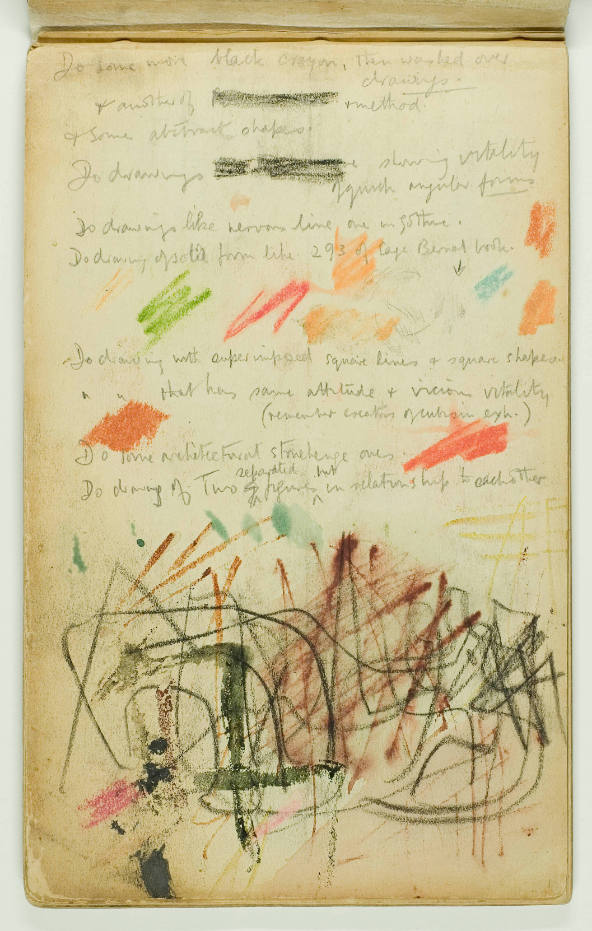 Do some more black crayon, then washed over
drawings.
& another of method.
& Some abstract shapes.
Do drawings showing vitality
of quick angular forms
Do drawings like nervous line one in Gothic.
Do drawing of solid form like 293 of Cage Bernat book.
Do drawing with superimposed square lines & square shapes
" " that has same attitude & vicious vitality
(remember creators of cubism exh.)
Do some architectural stonehenge ones.
Do drawing of Two separated but
figures in relationship to each other